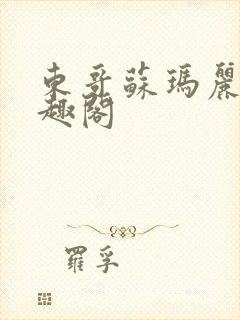 東哥蘇瑪麗
趣閣
羅孚